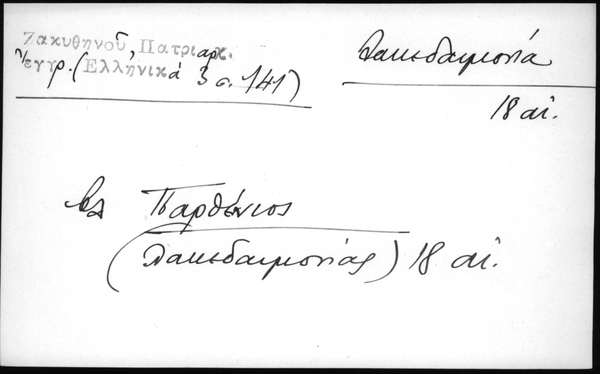 Ζακυθηνοῦ, Πατριαρχ.
ἔγγρ. (Ἑλληνικά 3 σ. 141)
Λακεδαιμονία
18 αἰ.
βλ Παρθένιος
(Λακεδαιμονίας) 18 αἰ.